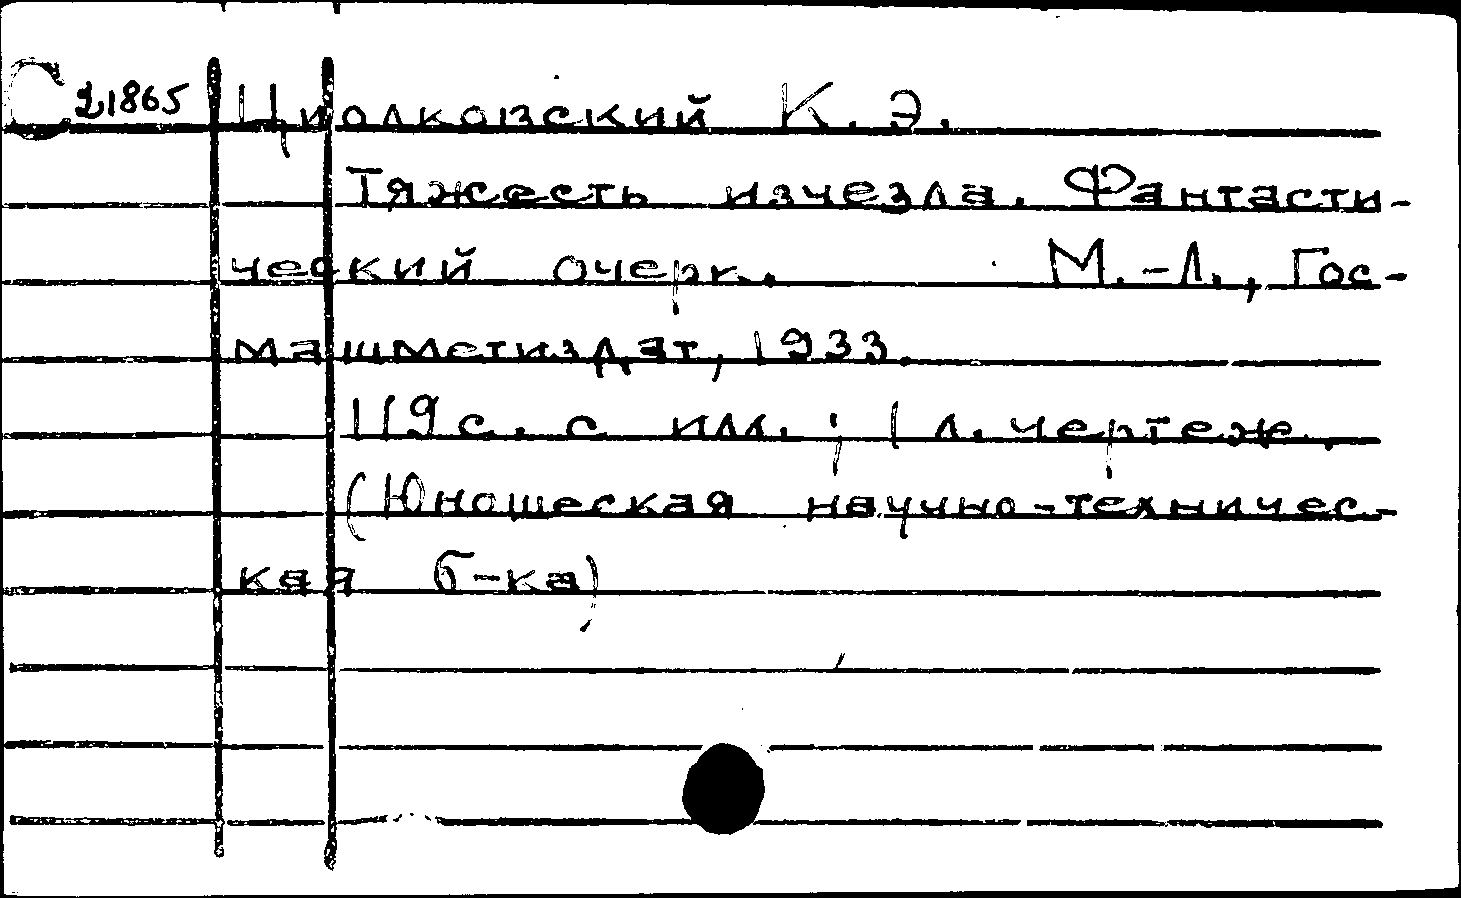 С 21865 Циолковский К. Э.
Тяжесть изчезла. Фантасти-
ческий очерк. М.-Л., Гос-
машметиздат, 1933.
119 с. с илл.; 1 л. чертеж.
(Юношеская научно-техничес-
кая б-ка)